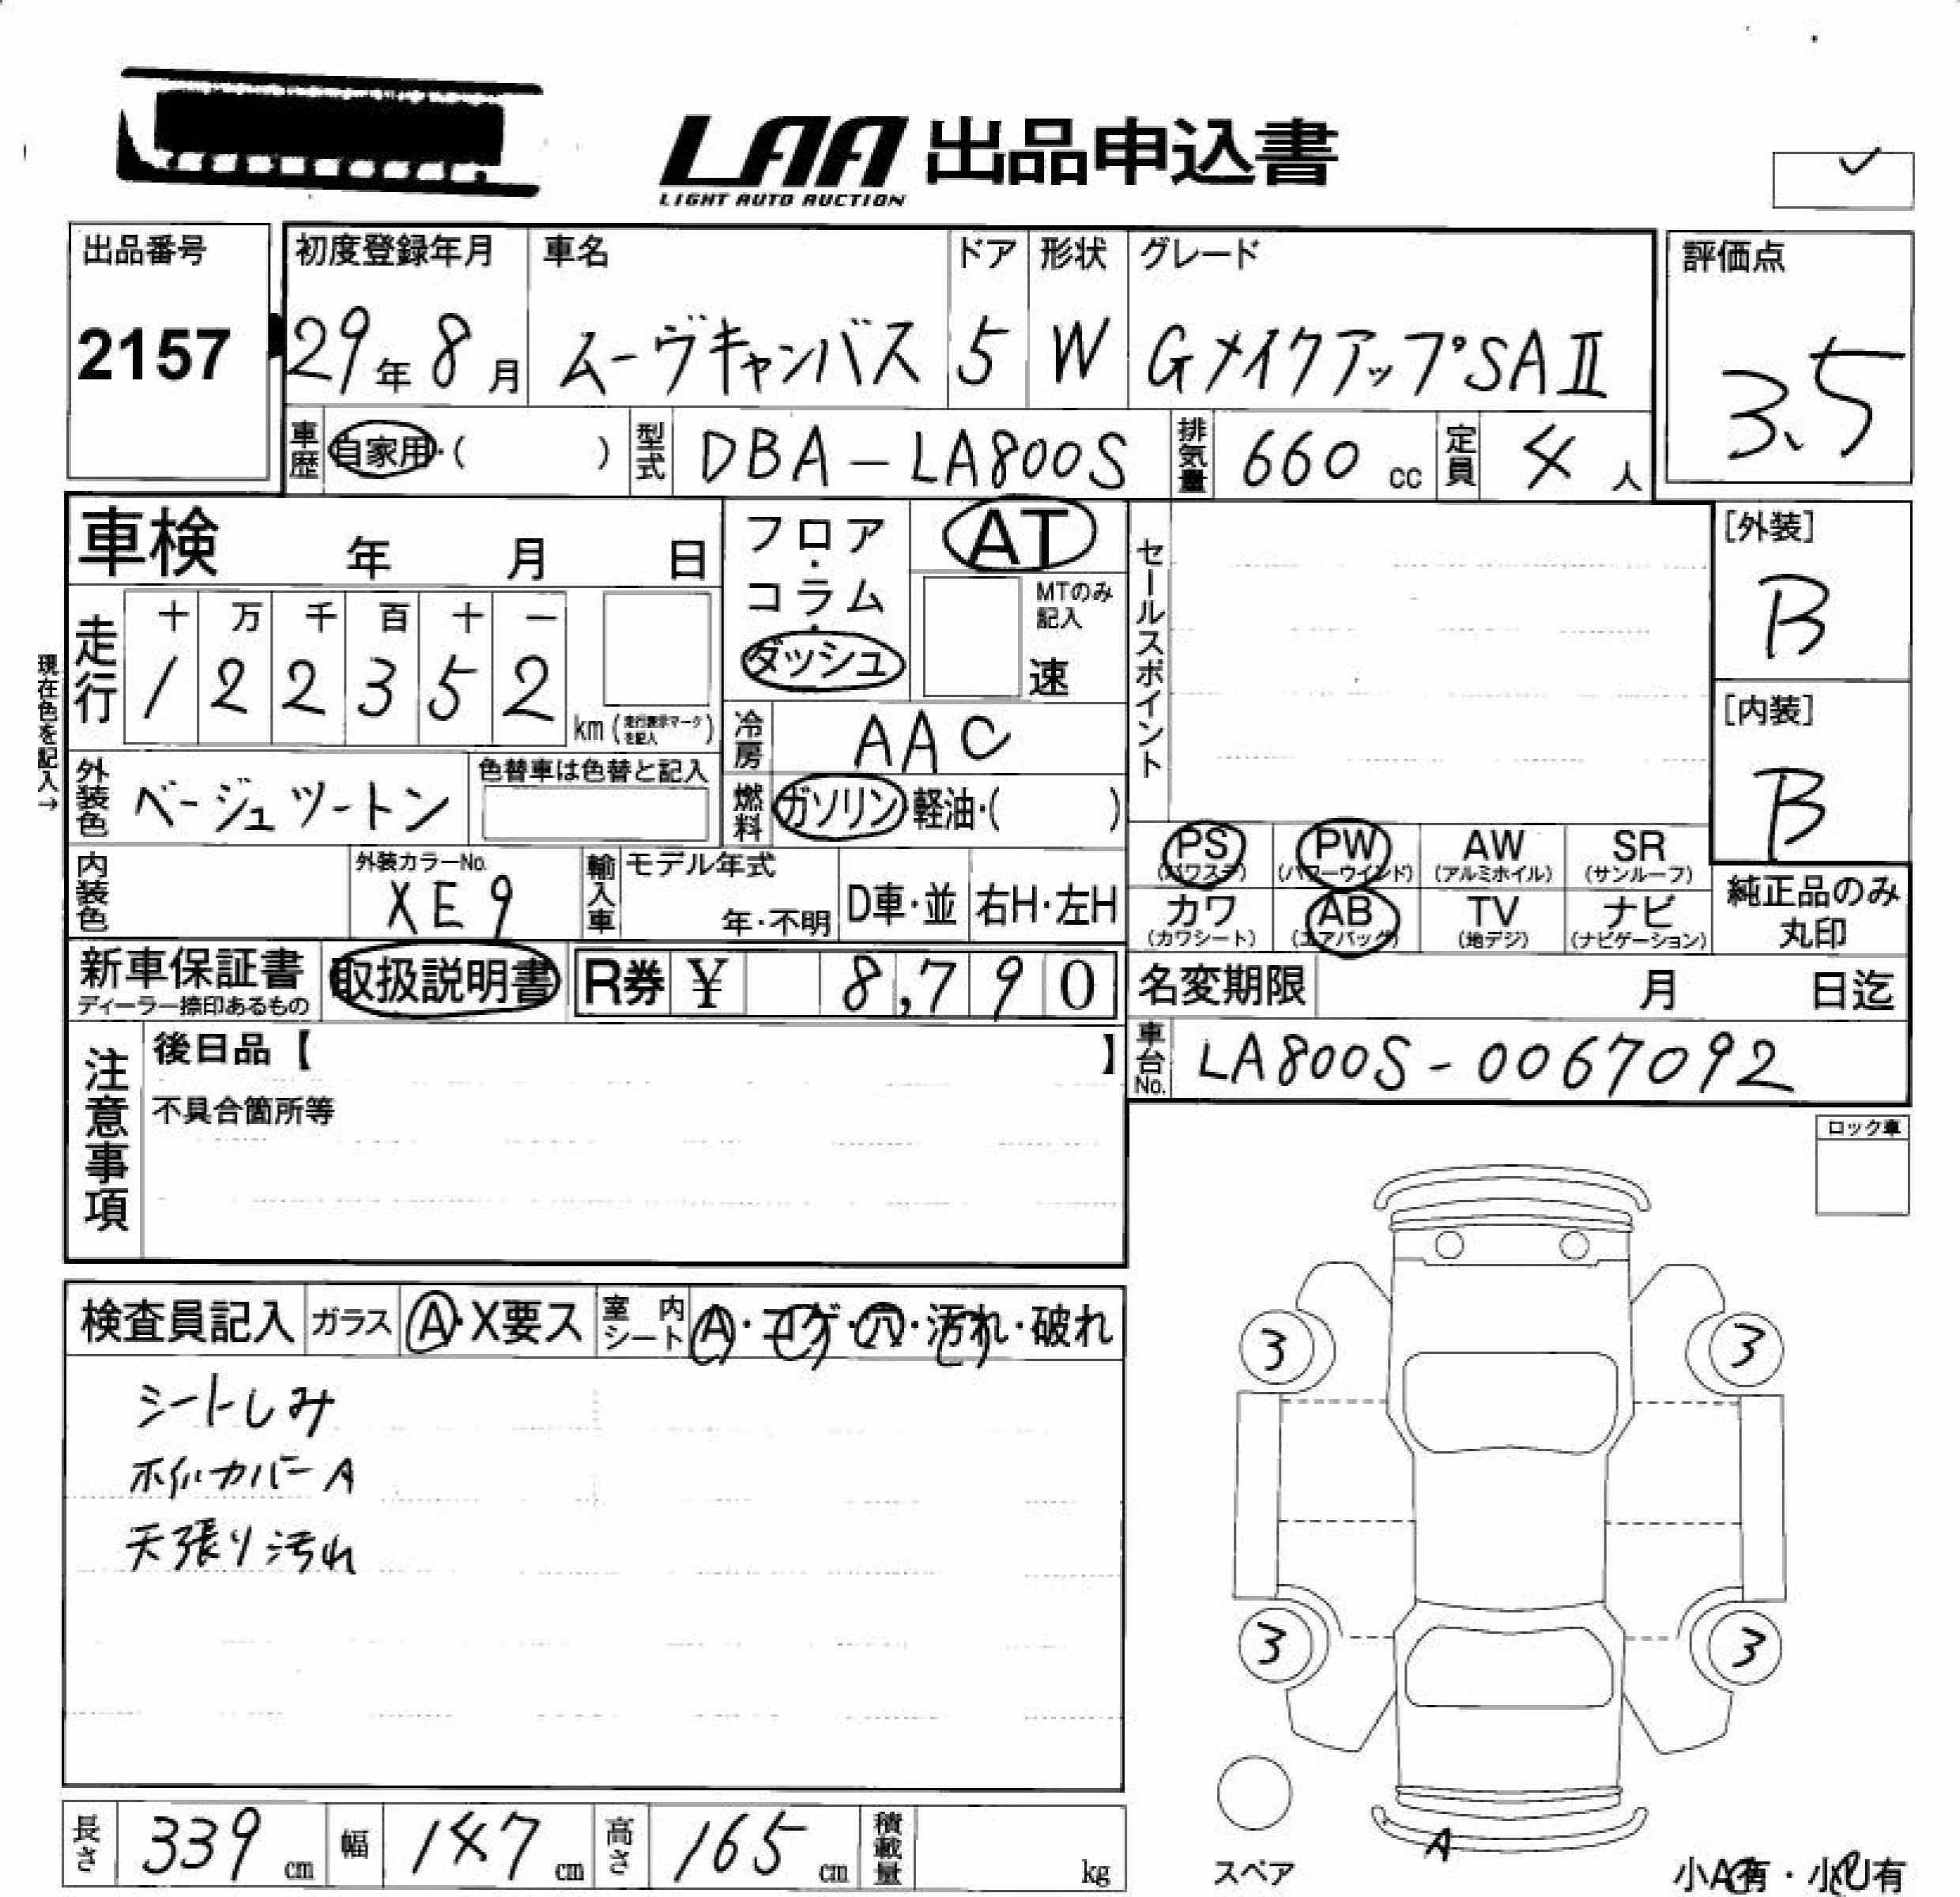 LAA 出品申込書
LIGHT AUTO AUCTION
出品番号
2157
初度登録年月
29年8月
車名
ムーヴキャンバス
ドア
5
形状
W
グレード
GメイクアップSAⅡ
評価点
3.5
車歴 自家用・( )
型式 DBA-LA800S
排気量 660 cc
定員 4 人
車検 年 月 日
フロア・コラム・ダッシュ
AT
MTのみ記入
速
セールスポイント
[外装]
B
[内装]
B
現在色を記入→
走行
十 万 千 百 十 一
1 2 2 3 5 2
km (走行表示マークを記入)
冷房 AAC
外装色 ベージュツートン
色替車は色替と記入
燃料 ガソリン・軽油・( )
PS (パワステ)
PW (パワーウインド)
AW (アルミホイル)
SR (サンルーフ)
カワ (カワシート)
AB (エアバッグ)
TV (地デジ)
ナビ (ナビゲーション)
純正品のみ丸印
内装色
外装カラーNo.
XE9
輸入車
モデル年式
年・不明
D車・並
右H・左H
新車保証書
ディーラー捺印あるもの
取扱説明書
R券 ¥ 8,790
名変期限 月 日迄
車台No. LA800S-0067092
注意事項
後日品【 】
不具合箇所等
ロック車
検査員記入
ガラス A・X要ス
室内シート A・コゲ・穴・汚れ・破れ
シートしみ
ホイルカバーA
天張り汚れ
3 3
3 3
A
スペア
小A有・小U有
長さ 339 cm
幅 147 cm
高さ 165 cm
積載量 kg